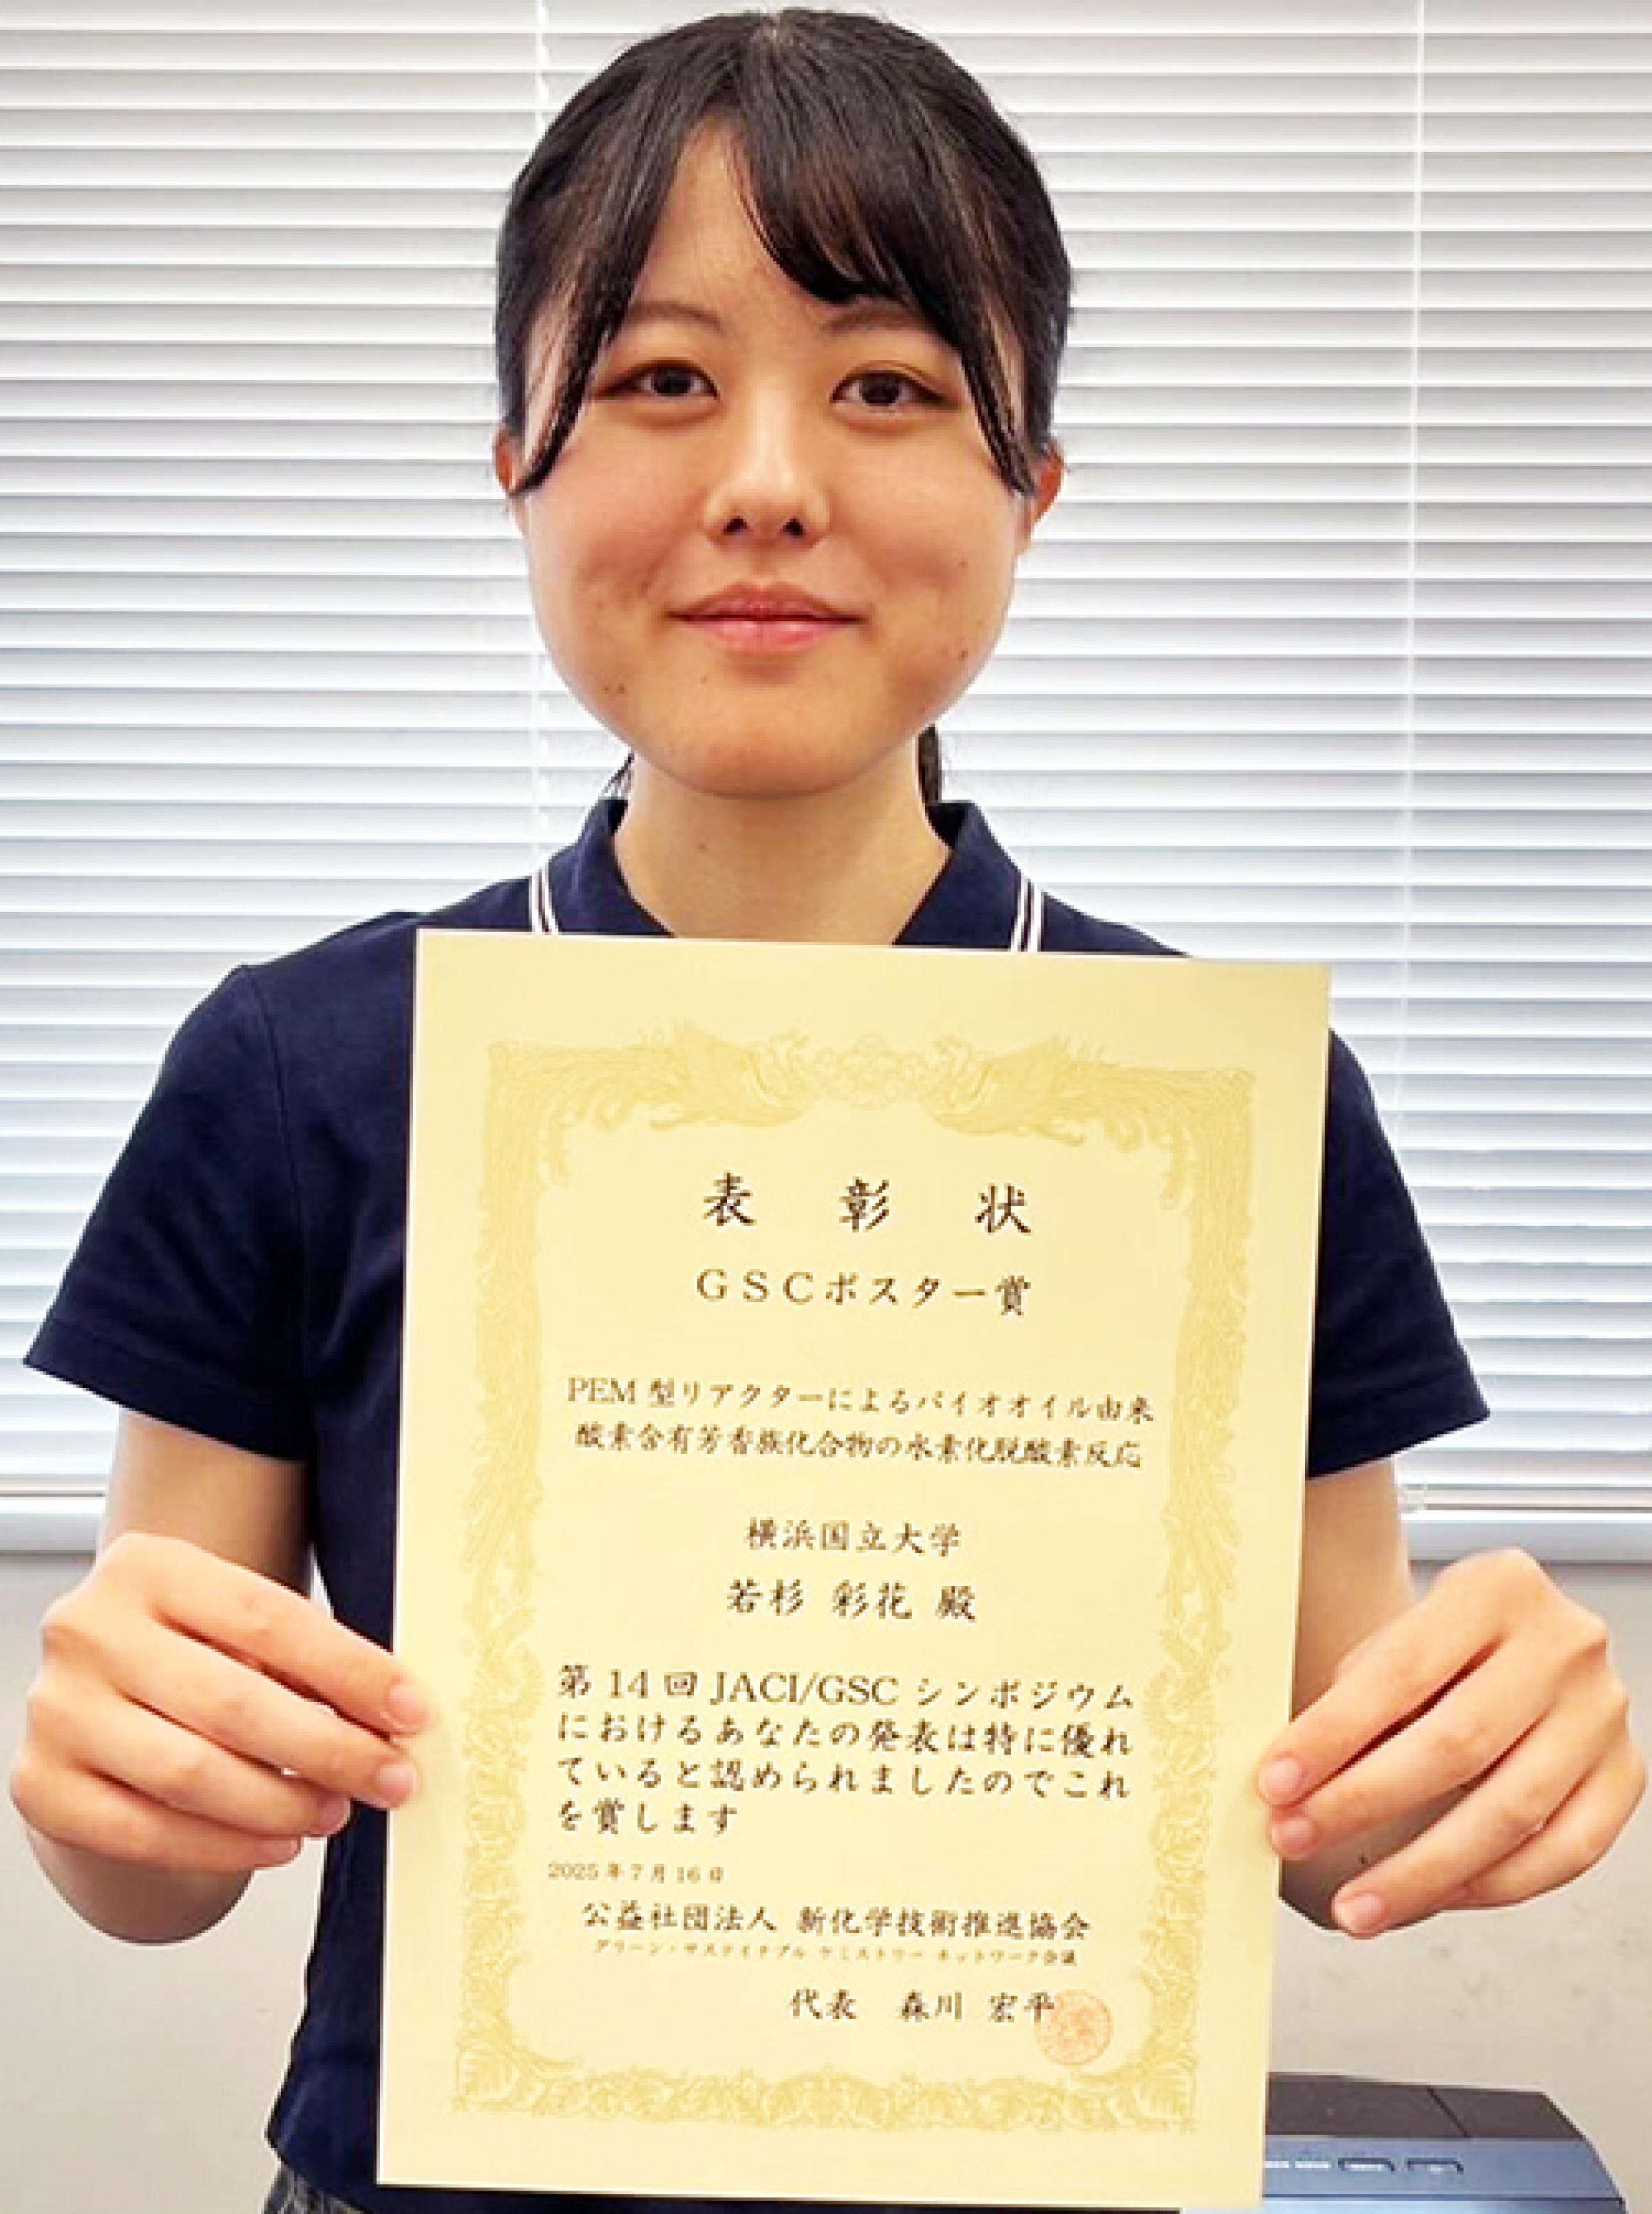 表彰状
GSCポスター賞
PEM型リアクターによるバイオオイル由来
酸素含有芳香族化合物の水素化脱酸素反応
横浜国立大学
若杉 彩花 殿
第14回 JACI/GSC シンポジウム
におけるあなたの発表は特に優れ
ていると認められましたのでこれ
を賞します
2025年7月16日
公益社団法人 新化学技術推進協会
グリーン・サステイナブル ケミストリー ネットワーク会議
代表 森川 宏平